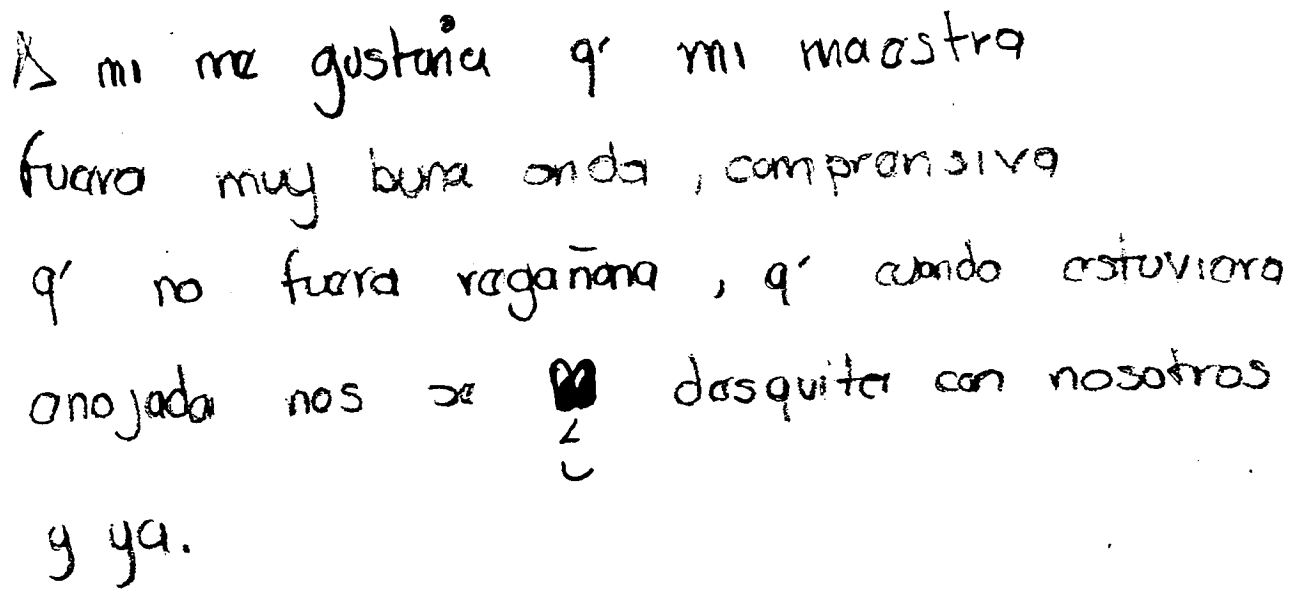 A mi me gustaria q' mi maestra
fuera muy buna onda, comprensiva
q' no fuera regañona, q' cuando estuviera
enojada nos se desquite con nosotros
y ya.